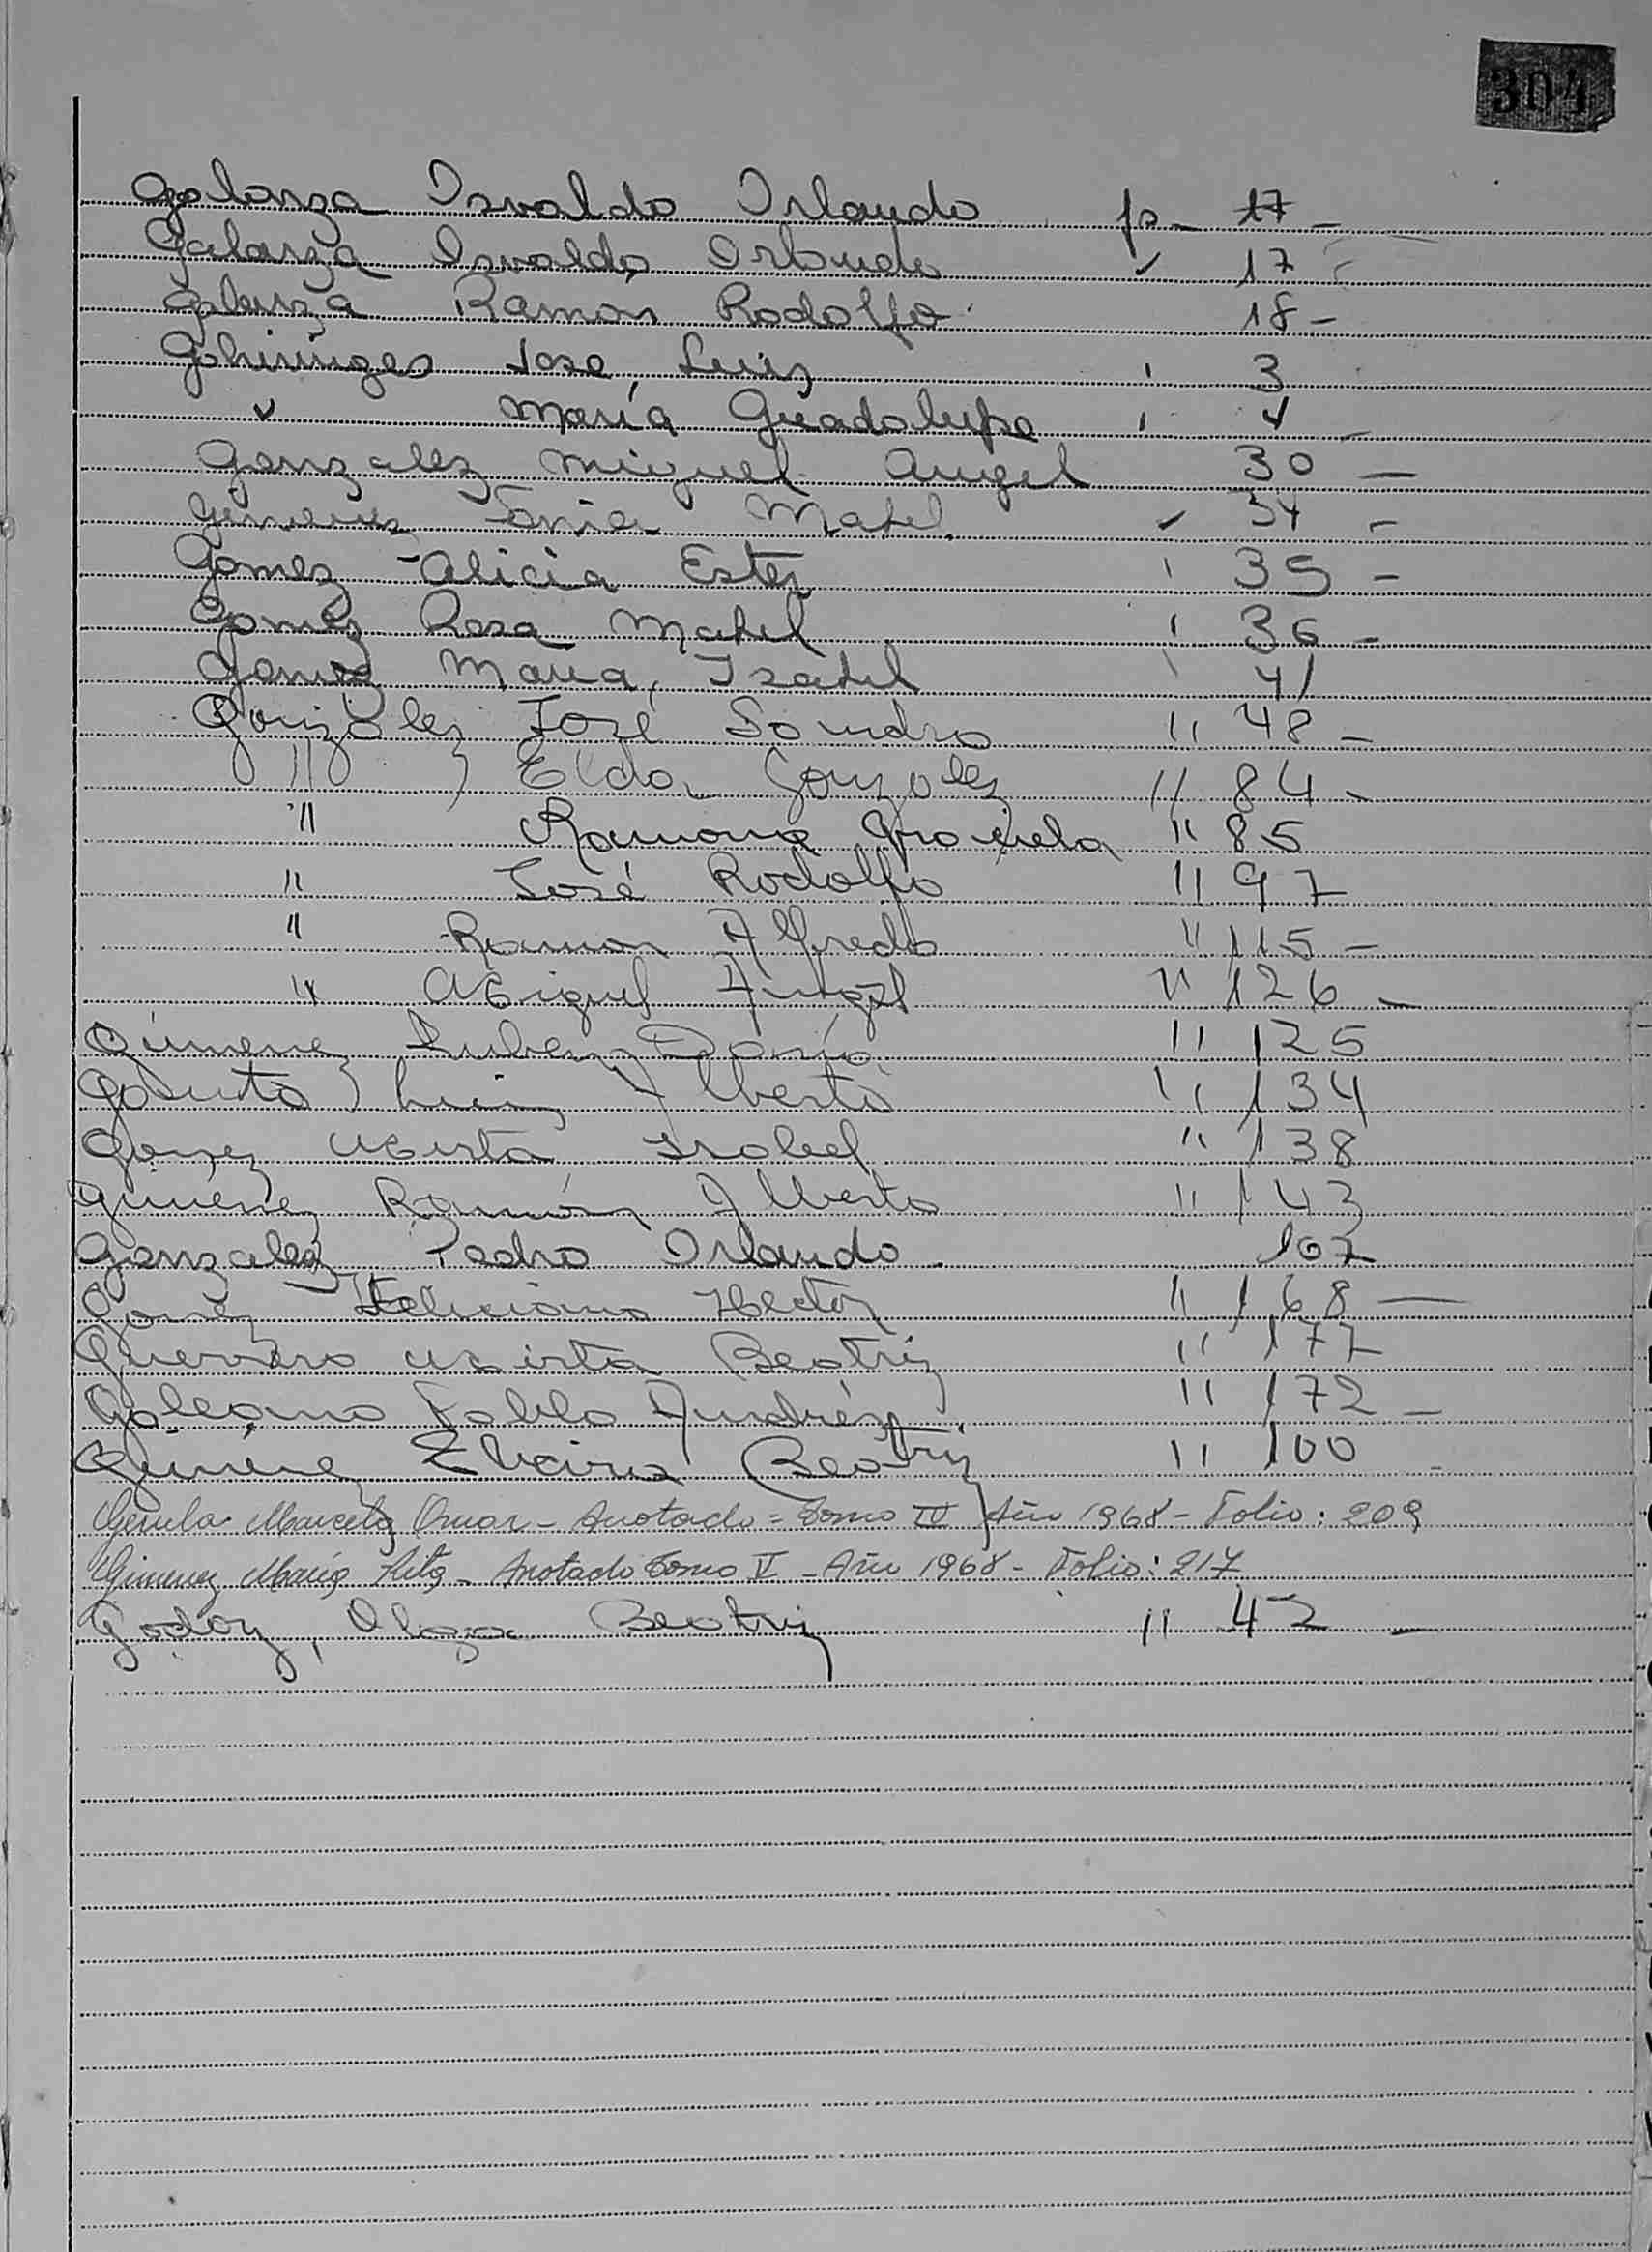 304
Galarza Osvaldo Orlando fs - 17 -
Galarza Osvaldo Orlando " 17
Galarza Ramon Rodolfo 18 -
Gohringes Jose Luis 3
" María Guadalupe 4 -
Gonzalez Miguel Angel 30 -
Gimenez Sonia Mabel 34 -
Gomez Alicia Ester 35 -
Gomez Rosa Mabel 36 -
Gomez Maria Isabel 41
González José Sandro " 48 -
" Elda González " 84 -
" Ramona Graciela " 85
" José Rodolfo " 97
" Ramon Alfredo " 115 -
" Miguel Angel " 126 -
Gimenez Ruben Darío " 125
Luis Alberto " 134
Gomez Mirta Isabel " 138
Giménez Ramón Alberto " 143
Gonzalez Pedro Orlando 167
Gomez Feliciano Hector " 168 -
Guerrero Mirta Beatriz " 177
Galeano Pablo Andrés " 172 -
Gimenez Beatriz " 100
Marcelo Omar - Anotado = Tomo IV Año 1968 - Folio: 209
Gimenez María Rita - Anotado Tomo V - Año 1968 - Folio: 217
Godoy, Olga Beatriz " 42 -